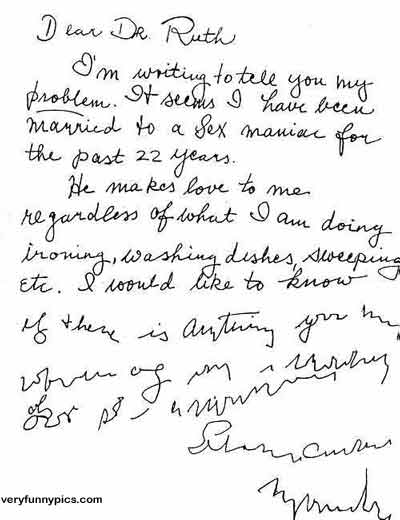 Dear Dr. Ruth
I'm writing to tell you my
problem. It seems I have been
married to a sex maniac for
the past 22 years.
He makes love to me
regardless of what I am doing
ironing, washing dishes, sweeping
etc. I would like to know
if there is anything you
veryfunnypics.com